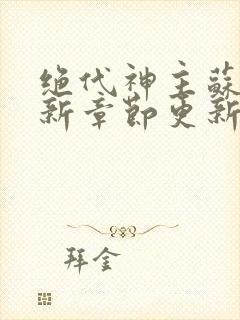 绝代神主蘇
新章節更新
拜金